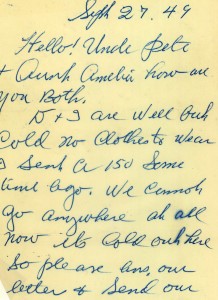 Sept 27. 49
Hello! Uncle Pete
+ Aunt Amelia how are
you Both.
D + I are well but
cold no clothes to wear
I sent a 150 some
time ago. We cannot
go anywhere at all
now its cold out here
so please ans, our
letter & send our